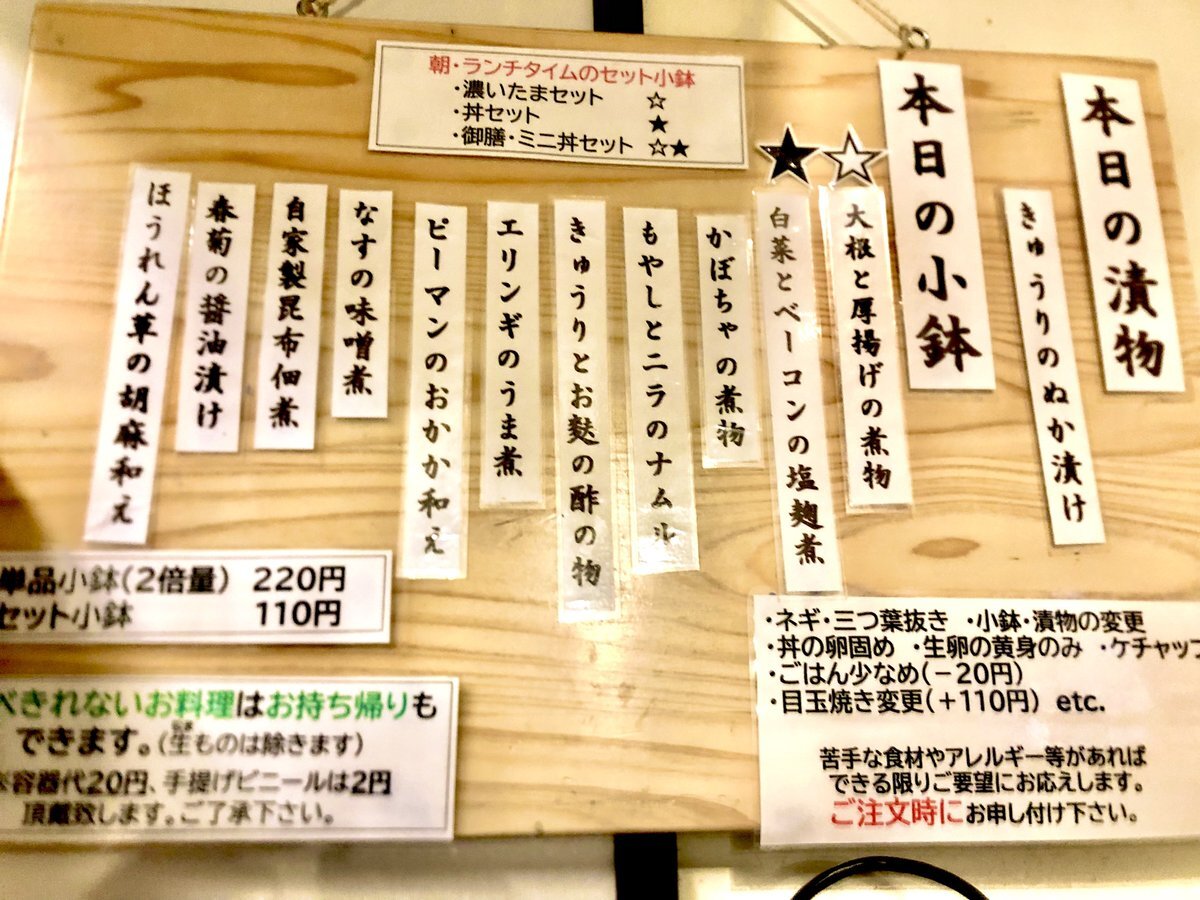 朝・ランチタイムのセット小鉢
・濃いたまセット ☆
・丼セット ★
・御膳・ミニ丼セット ☆★
本日の漬物
きゅうりのぬか漬け
本日の小鉢
☆
大根と厚揚げの煮物
★
白菜とベーコンの塩麹煮
かぼちゃの煮物
もやしとニラのナムル
きゅうりとお麩の酢の物
エリンギのうま煮
ピーマンのおかか和え
なすの味噌煮
自家製昆布佃煮
春菊の醤油漬け
ほうれん草の胡麻和え
単品小鉢(2倍量) 220円
セット小鉢 110円
べきれないお料理はお持ち帰りも
できます。(生ものは除きます)
※容器代20円、手提げビニールは2円
頂戴致します。ご了承下さい。
・ネギ・三つ葉抜き ・小鉢・漬物の変更
・丼の卵固め ・生卵の黄身のみ ・ケチャップ
・ごはん少なめ(−20円)
・目玉焼き変更(+110円) etc.
苦手な食材やアレルギー等があれば
できる限りご要望にお応えします。
ご注文時にお申し付け下さい。